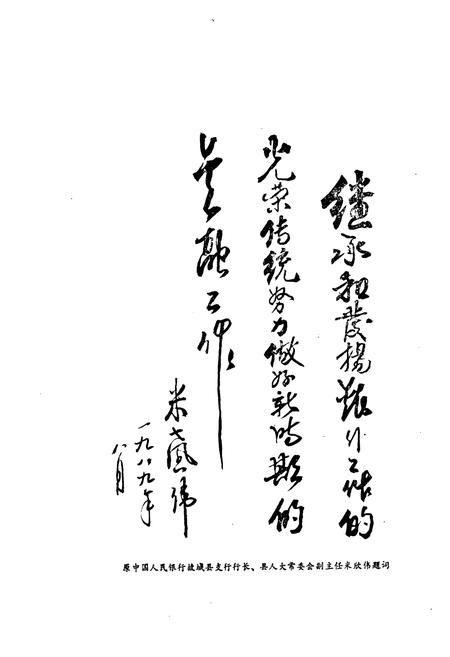 继承和發揚银行工作的
光荣传统努力做好新时期的
金融工作
米伟
一九八九年
八月
原中国人民银行故城县支行行长、县人大常委会副主任米欣伟题词